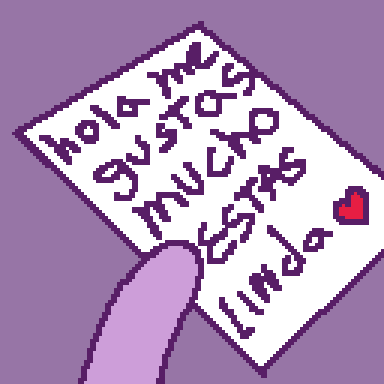 hola me
gustas
mucho
ESTAS
linda